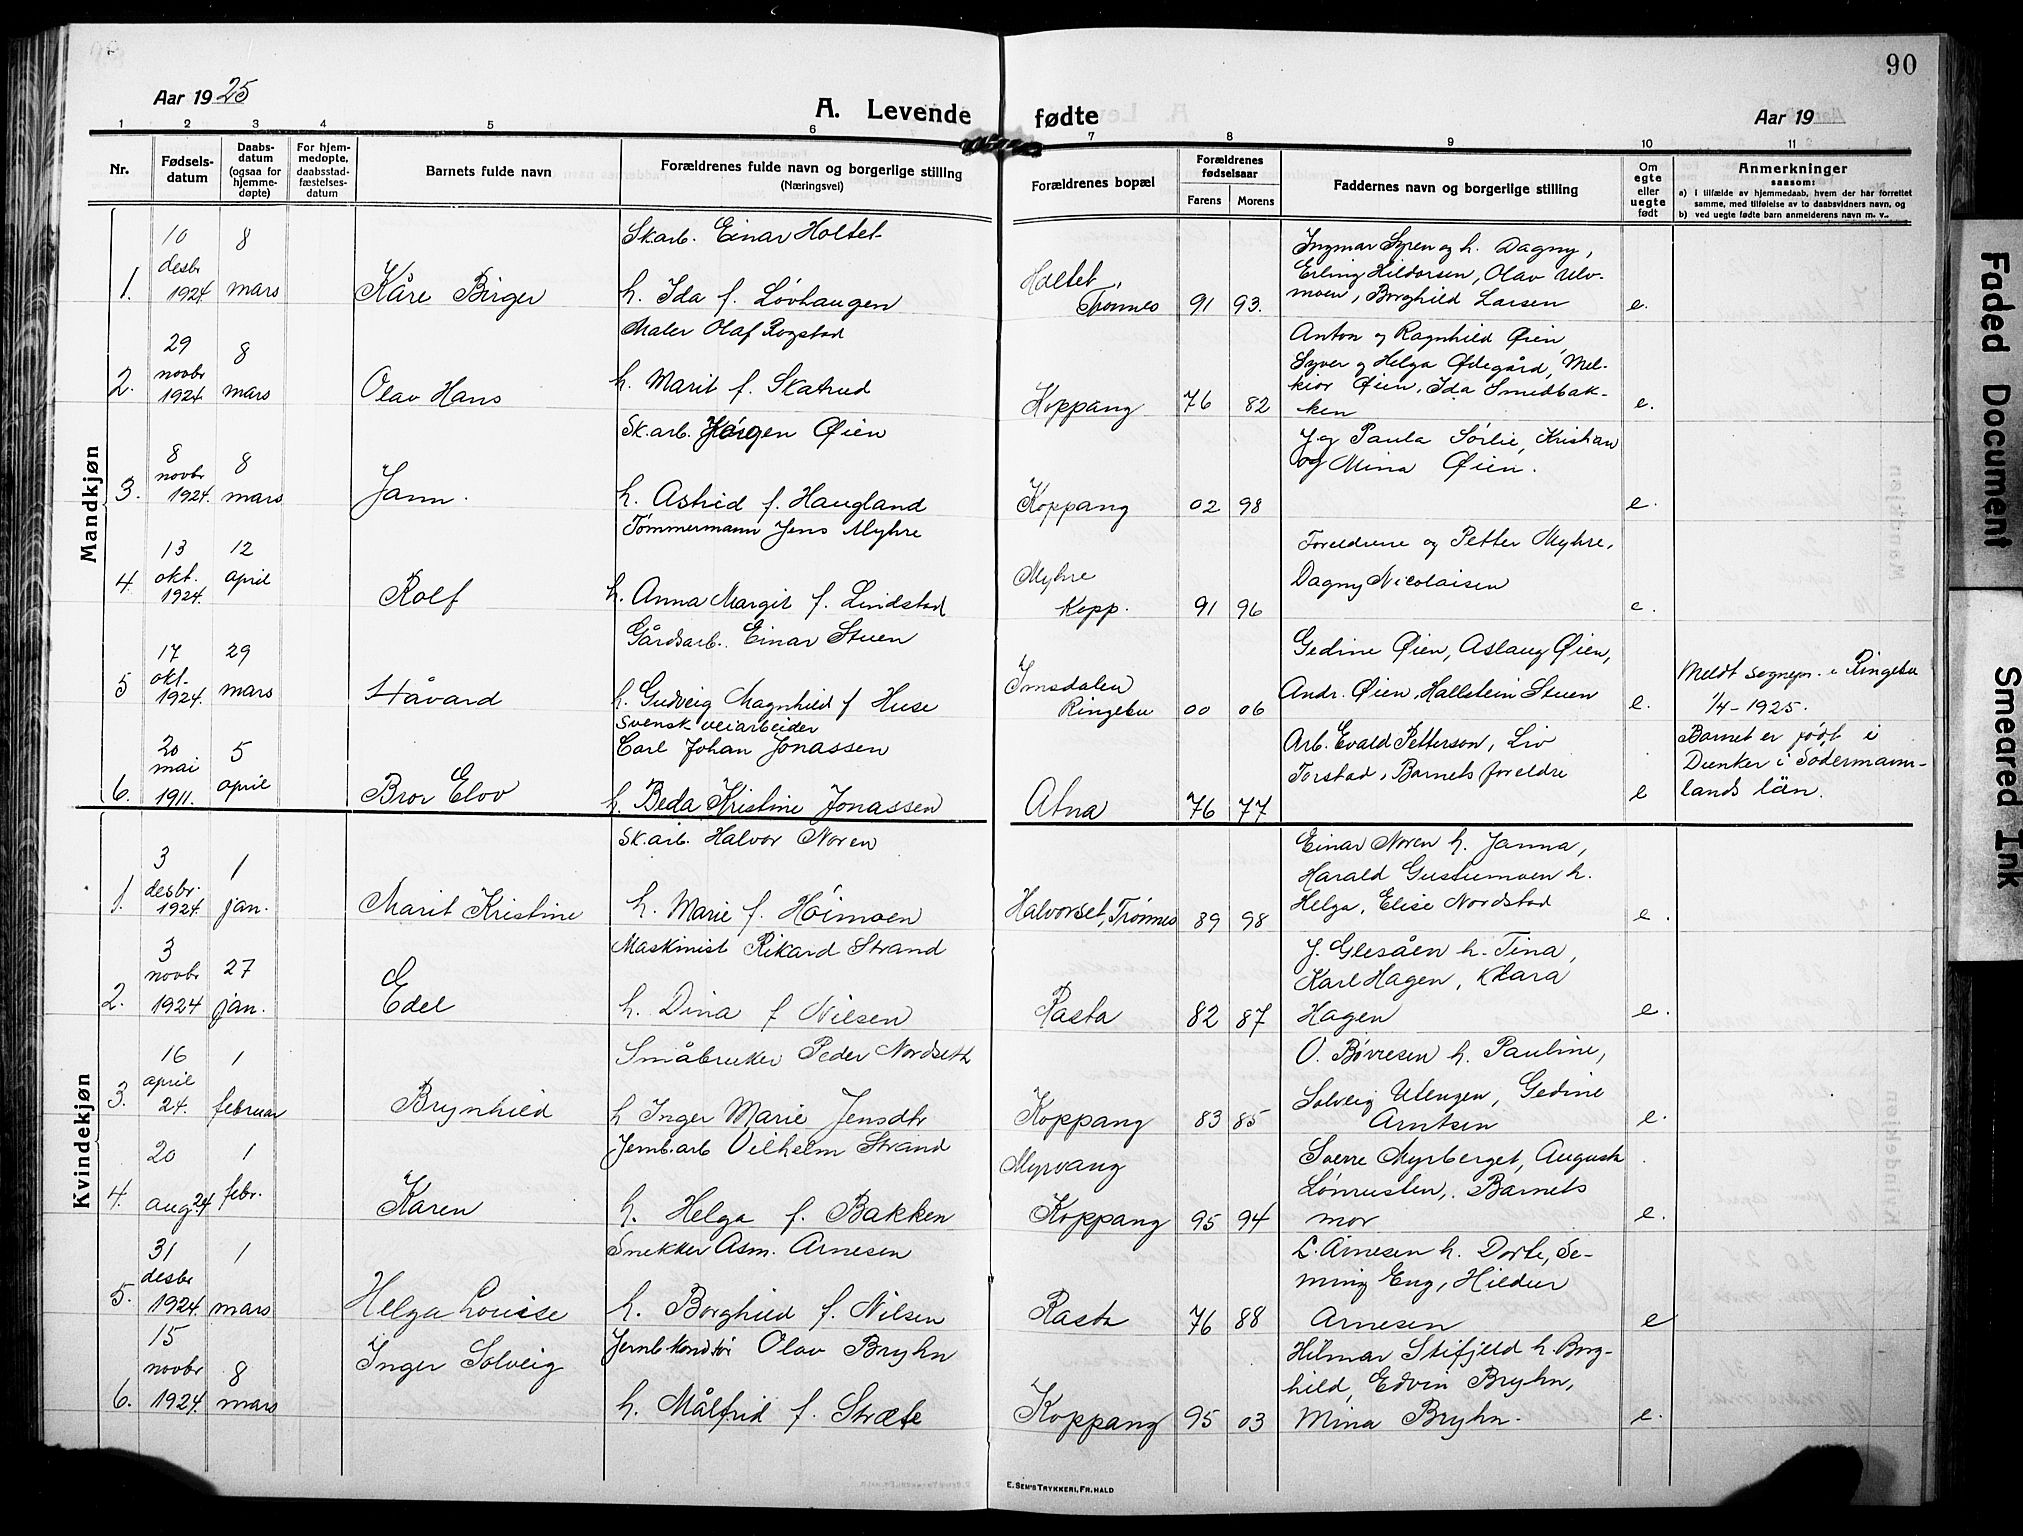 90
Aar 1925
A. Levende fødte
Aar 19
1 2 3 4 5 6 7 8 9 10 11
Nr.
Fødsels-
datum
Daabs-
datum
(ogsaa for
hjemme-
døpte)
For hjem-
medøpte,
daabsstad-
fæstelses-
datum
Barnets fulde navn
Forældrenes fulde navn og borgerlige stilling
(Næringsvei)
Forældrenes bopæl
Forældrenes
fødselsaar
Farens Morens
Faddernes navn og borgerlige stilling
Om
egte
eller
uegte
født
Anmerkninger
saasom:
a) i tilfælde av hjemmedaab, hvem der har forrettet
samme, med tilføielse av to daabsvidners navn, og
b) ved uegte fødte barn anmelderens navn m. v..
Mandkjøn
1. 10 desbr 1924 8 mars Kåre Birger
Sk.arb. Einar Holtet
h. Ida f. Løvhaugen
Holtet, Trønnes 91 93.
Ingmar Syren og h. Dagny,
Erling Hildorsen, Olav Ulv-
moen, Borghild Larsen
e.
2. 29 novbr 1924 8 mars Olav Hans
Maler Olaf Rogstad
h. Marit f. Skatrud
Koppang 76 82
Anton og Ragnhild Øien
Syver og Helga Ødegård, Mel-
kior Øien, Ida Smedbak-
ken
e.
3. 8 novbr 1924. 8 mars Jann.
Sk.arb. Jørgen Øien
h. Astrid f. Haugland
Koppang 02 98
J. og Paula Sørlie, Kristian
og Mina Øien.
e.
4. 13 okt. 1924. 12 april Rolf
Tømmermann Jens Myhre
h. Anna Margit f. Lindstad
Myhre Kopp. 91 96
Foreldrene og Petter Myhre,
Dagny Nicolaisen
e.
5 17 okt. 1924. 29 mars Håvard
Gårdsarb. Einar Stuen
h. Gudveig Magnhild f Huse
Imsdalen Ringebu 00 06
Gedine Øien, Aslaug Øien,
Andr. Øien, Hallstein Stuen
e.
Meldt sognepr. i Ringebu
1/4-1925.
6. 20 mai 1911. 5 april Bror Elov
Svensk veiarbeider
Carl Johan Jonassen
h. Beda Kristine Jonassen
Atna 76 77
Arb. Evald Petterson, Liv
Torstad, Barnets foreldre
e
Barnet er født i
Dunker i Södermann-
lands län.
Kvindekjøn
1. 3 desbr. 1924. 1 jan. Marit Kristine
Sk.arb. Halvor Noren
h. Marie f. Høimoen
Halvorset, Trønnes 89 98
Einar Noren h. Janna,
Harald Gustumoen h.
Helga, Elise Nordstad
e.
2. 3 novbr 1924 27 jan. Edel
Maskinist Rikard Strand
h. Dina f Nilsen
Rasta 82 87
J. Glesåen h. Tina,
Karl Hagen, Klara
Hagen
e.
3. 16 april 24. 1 februar Brynhild
Småbruker Peder Nordseth
h Inger Marie Jensdtr
Koppang 83 85
O. Bøvresen h. Pauline,
Solveig Ulengen, Gedine
Arntsen
e.
4. 20 aug. 24 1 febr. Karen
Jernb.arb Vilhelm Strand
h. Helga f. Bakken
Myrvang Koppang 95 94
Sverre Myrberget, Augusta
Lønrusten, Barnets
mor
e.
5. 31 desbr 1924. 1 mars Helga Louise
Snekker Asm. Arnesen
h. Borghild f. Nilsen
Rasta 76 88
L. Arnesen h. Dorte, Se-
ming Eng, Hildur
Arnesen
e
6. 15 novbr 1924. 8 mars Inger Solveig
Jernb kondtør Olav Bryhn
h. Målfrid f. Stræte
Koppang 95 03
Hilmar Stifjeld h. Borg-
hild, Edvin Bryhn,
Mina Bryhn.
e.
E. SEM'S TRYKKERI, FR.HALD
Faded Document
Smeared Ink